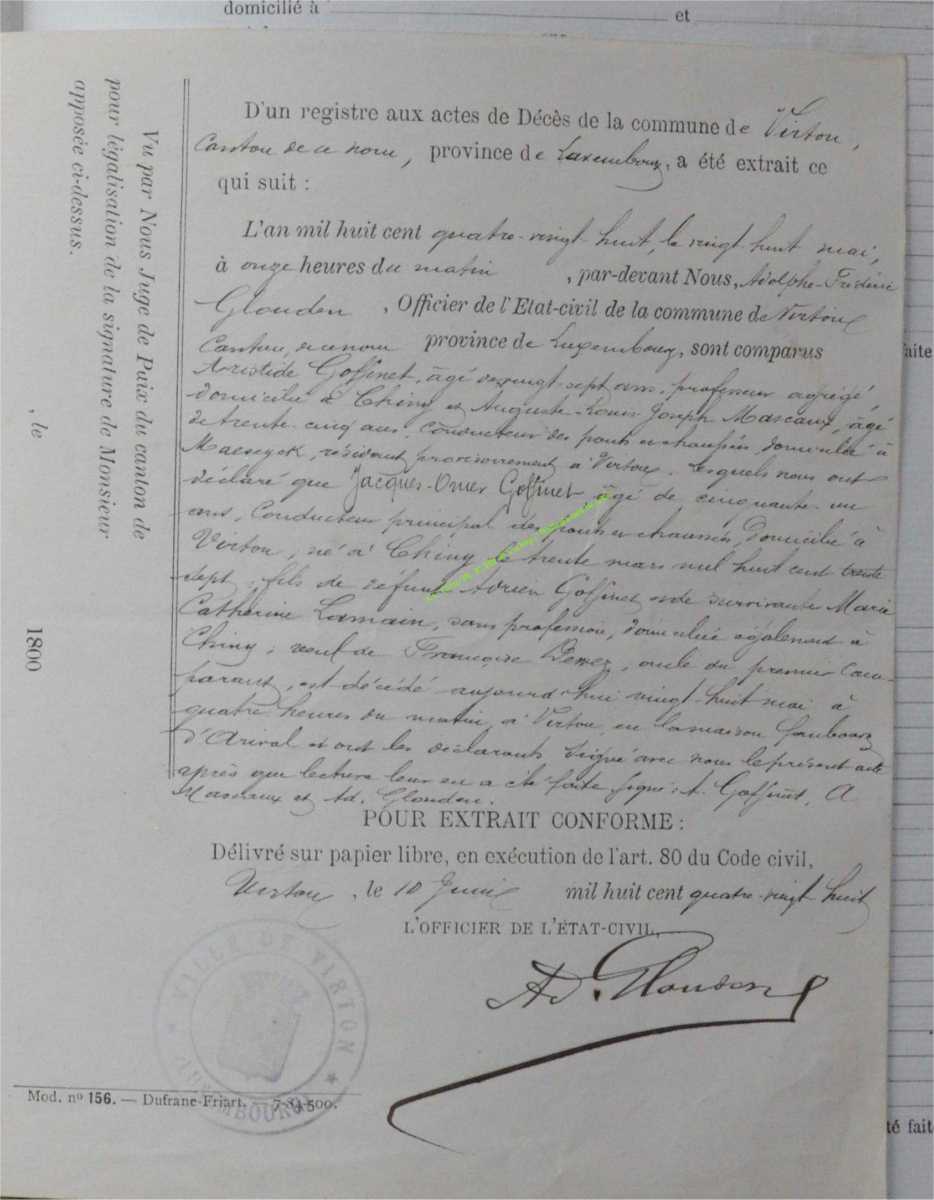 domicilié à et
Vu par Nous Juge de Paix du canton de
pour légalisation de la signature de Monsieur
apposée ci-dessus.
, le 1800
D'un registre aux actes de Décès de la commune de Virton,
Canton de ce nom, province de Luxembourg, a été extrait ce
qui suit :
L'an mil huit cent quatre-vingt-huit, le vingt-huit mai,
à onze heures du matin, par-devant Nous, Adolphe-Frédéric
Glouden, Officier de l'Etat-civil de la commune de Virton
Canton de ce nom province de Luxembourg, sont comparus
Aristide Goffinet, âgé de vingt-sept ans, professeur agrégé,
domicilié à Chiny et Auguste-Louis Joseph Mascaux, âgé
de trente-cinq ans, conducteur des ponts et chaussées, domicilié à
Maeseyck, résidant provisoirement à Virton, lesquels nous ont
déclaré que Jacques-Omer Goffinet, âgé de cinquante-un
ans, conducteur principal des ponts et chaussées, domicilié à
Virton, né à Chiny le trente mars mil huit cent trente
sept, fils de défunt Adrien Goffinet et de survivante Marie
Catherine Lamain, sans profession, domiciliée également à
Chiny, veuf de Françoise, oncle du premier com-
parant, est décédé aujourd'hui vingt-huit mai à
quatre heures du matin, à Virton, en la maison faubourg
d'Arival et ont les déclarants signé avec nous le présent acte
après que lecture leur en a été faite signé: A. Goffinet, A
Mascaux et Ad. Glouden.
POUR EXTRAIT CONFORME :
Délivré sur papier libre, en exécution de l'art. 80 du Code civil,
Virton, le 10 Juin mil huit cent quatre-vingt huit
L'OFFICIER DE L'ÉTAT-CIVIL,
Ad. Glouden
VILLE DE VIRTON
LUXEMBOURG
Mod. nº 156. — Dufrane-Friart. — 7-84-500.
faite
té fait